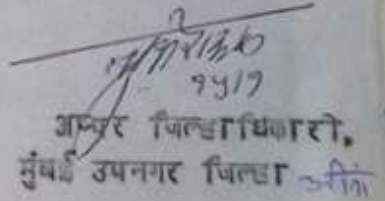 १५/१
अप्पर जिल्हाधिकारी,
मुंबई उपनगर जिल्हा